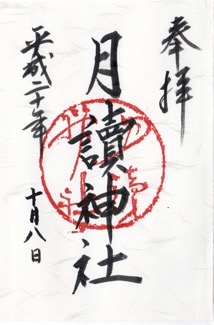 奉拝
月讀神社
平成二十年
十月八日